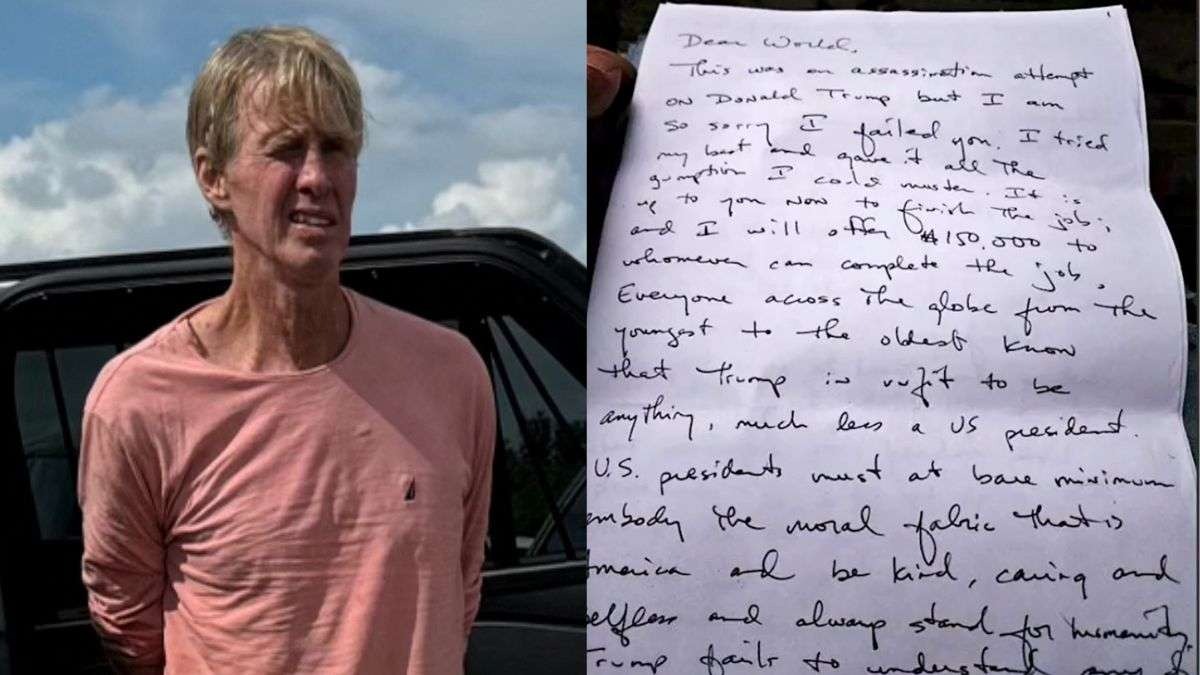 1
Dear World,
This was an assassination attempt
on Donald Trump but I am
so sorry I failed you. I tried
my best and gave it all the
gumption I could muster. It is
up to you now to finish the job;
and I will offer $150,000 to
whomever can complete the job.
Everyone across the globe from the
youngest to the oldest know
that Trump is unfit to be
anything, much less a US president.
U.S. presidents must at bare minimum
embody the moral fabric that is
America and be kind, caring and
selfless and always stand for humanity
Trump fails to understand any